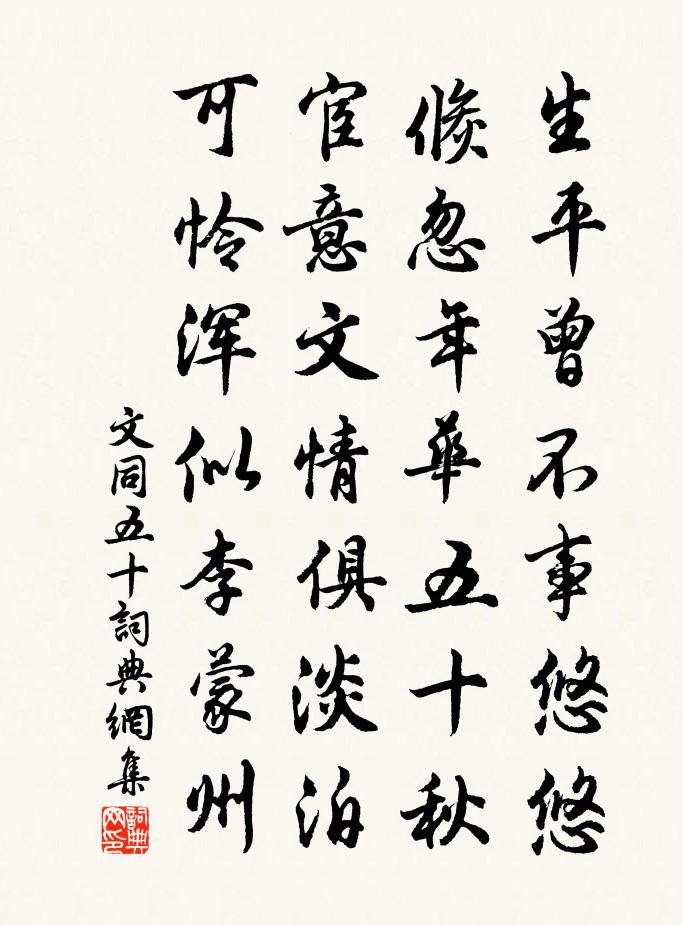 生平曾不事悠悠
倏忽年华五十秋
宦意文情俱淡泊
可怜浑似李蒙州
文同五十詞典網集
詞典网印